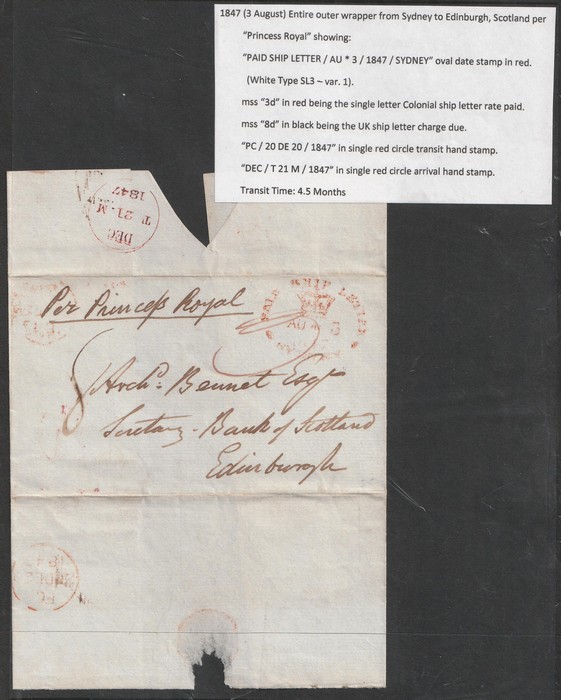 1847 (3 August) Entire outer wrapper from Sydney to Edinburgh, Scotland per
"Princess Royal" showing:
"PAID SHIP LETTER / AU * 3 / 1847 / SYDNEY" oval date stamp in red.
(White Type SL3 – var. 1).
mss "3d" in red being the single letter Colonial ship letter rate paid.
mss "8d" in black being the UK ship letter charge due.
"PC / 20 DE 20 / 1847" in single red circle transit hand stamp.
"DEC / T 21 M / 1847" in single red circle arrival hand stamp.
Transit Time: 4.5 Months
DEC
T 21. M
1847
Per Princess Royal
PAID SHIP LETTER
AU * 3
8
Archd. Bennet Esqr
Secretary - Bank of Scotland
Edinburgh
PC